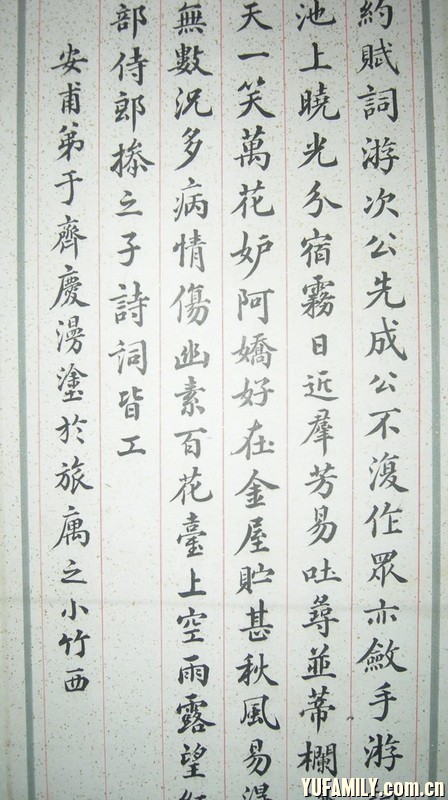 約賦詞游次公先成公不復作眾亦斂手游
池上曉光分宿霧日近羣芳易吐尋並蒂欄
天一笑萬花妒阿嬌好在金屋貯甚秋風易
無數況多病情傷幽素百花臺上空雨露望
部侍郎操之子詩詞皆工
安甫弟于齊慶漫塗於旅庽之小竹西
YUFAMILY.com.cn